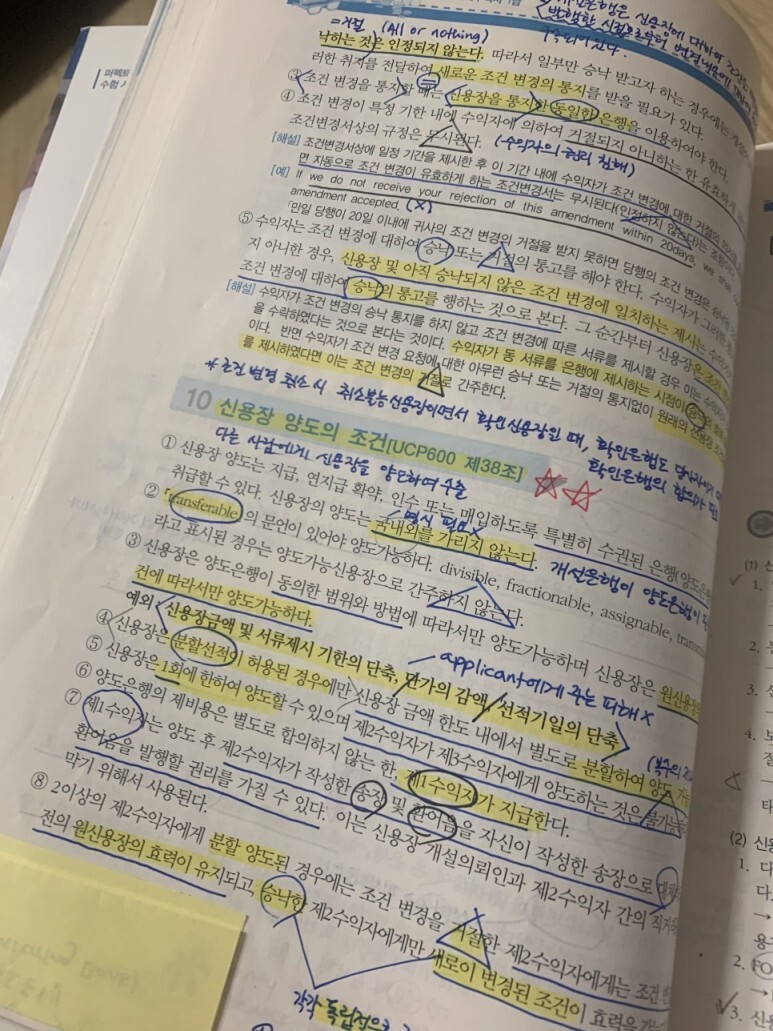 신용장에 대하여
= 거절 (All or nothing)
낙하는 것은 인정되지 않는다. 따라서 일부만 승낙 받고자 하는 경우에는
러한 취지를 전달하여 새로운 조건 변경의 통지를 받을 필요가 있다.
③ 조건 변경을 통지할 때는 신용장을 통지한 동일한 은행을 이용하여야 한다.
④ 조건 변경이 특정 기한 내에 수익자에 의하여 거절되지 아니하는 한 유효하게
조건변경서상의 규정은 무시된다. (수익자의 권리 침해)
[해설] 조건변경서상에 일정 기간을 제시한 후 이 기간 내에 수익자가 조건 변경에 대한 거절의
면 자동으로 조건 변경이 유효하게 하는 조건변경서는 무시된다(인정하지 않는다)는
[예] If we do not receive your rejection of this amendment within 20days, we
amendment accepted. (X)
「만일 당행이 20일 이내에 귀사의 조건 변경의 거절을 받지 못하면 당행의 조건 변경은
⑤ 수익자는 조건 변경에 대하여 승낙 또는 거절의 통고를 해야 한다. 수익자가 그러한
지 아니한 경우, 신용장 및 아직 승낙되지 않은 조건 변경에 일치하는 제시는 수익자
조건 변경에 대하여 승낙의 통고를 행하는 것으로 본다. 그 순간부터 신용장은 조건
[해설] 수익자가 조건 변경의 승낙 통지를 하지 않고 조건 변경에 따른 서류를 제시할 경우 이는 수익자
을 수락하였다는 것으로 본다는 것이다. 수익자가 동 서류를 은행에 제시하는 시점이 승낙
이다. 반면 수익자가 조건 변경 요청에 대한 아무런 승낙 또는 거절의 통지없이 원래의 신용장
를 제시하였다면 이는 조건 변경의 거절로 간주한다.
* 조건 변경 취소 시 취소불능신용장이면서 확인신용장인 때, 확인은행도 당사자이기
확인은행의 합의가
10 신용장 양도의 조건[UCP600 제38조]
다른 사람에게 신용장을 양도하여 수출
① 신용장 양도는 지급, 연지급 확약, 인수 또는 매입하도록 특별히 수권된 은행(양도은행
취급할 수 있다. 신용장의 양도는 국내외를 가리지 않는다. 개설은행이 양도은행이
명시 필요 X
② 「transferable」의 문언이 있어야 양도가능하다. divisible, fractionable, assignable,
라고 표시된 경우는 양도가능신용장으로 간주하지 않는다.
③ 신용장은 양도은행이 동의한 범위와 방법에 따라서만 양도가능하며 신용장은 원신용장
건에 따라서만 양도가능하다.
예외 : 신용장금액 및 서류제시 기한의 단축, 단가의 감액, 선적기일의 단축
applicant에게 주는 피해 X
④ 신용장은 분할선적이 허용된 경우에만 신용장 금액 한도 내에서 별도로 분할하여 양도
⑤ 신용장은 1회에 한하여 양도할 수 있으며 제2수익자가 제3수익자에게 양도하는 것은 불가능
⑥ 양도은행의 제비용은 별도로 합의하지 않는 한, 제1수익자가 지급한다.
⑦ 제1수익자는 양도 후 제2수익자가 작성한 송장 및 환어음을 자신이 작성한 송장으로
환어음을 발행할 권리를 가질 수 있다. 이는 신용장 개설의뢰인과 제2수익자 간의 직거래
막기 위해서 사용된다.
⑧ 2이상의 제2수익자에게 분할 양도된 경우에는 조건 변경을 거절한 제2수익자에게는 조건
전의 원신용장의 효력이 유지되고, 승낙한 제2수익자에게만 새로이 변경된 조건이 효력을
각각 독립적으로
(1) 신
1.
2.
3.
4.
(2) 신용
1. 다
다
2. FO
3. 신용